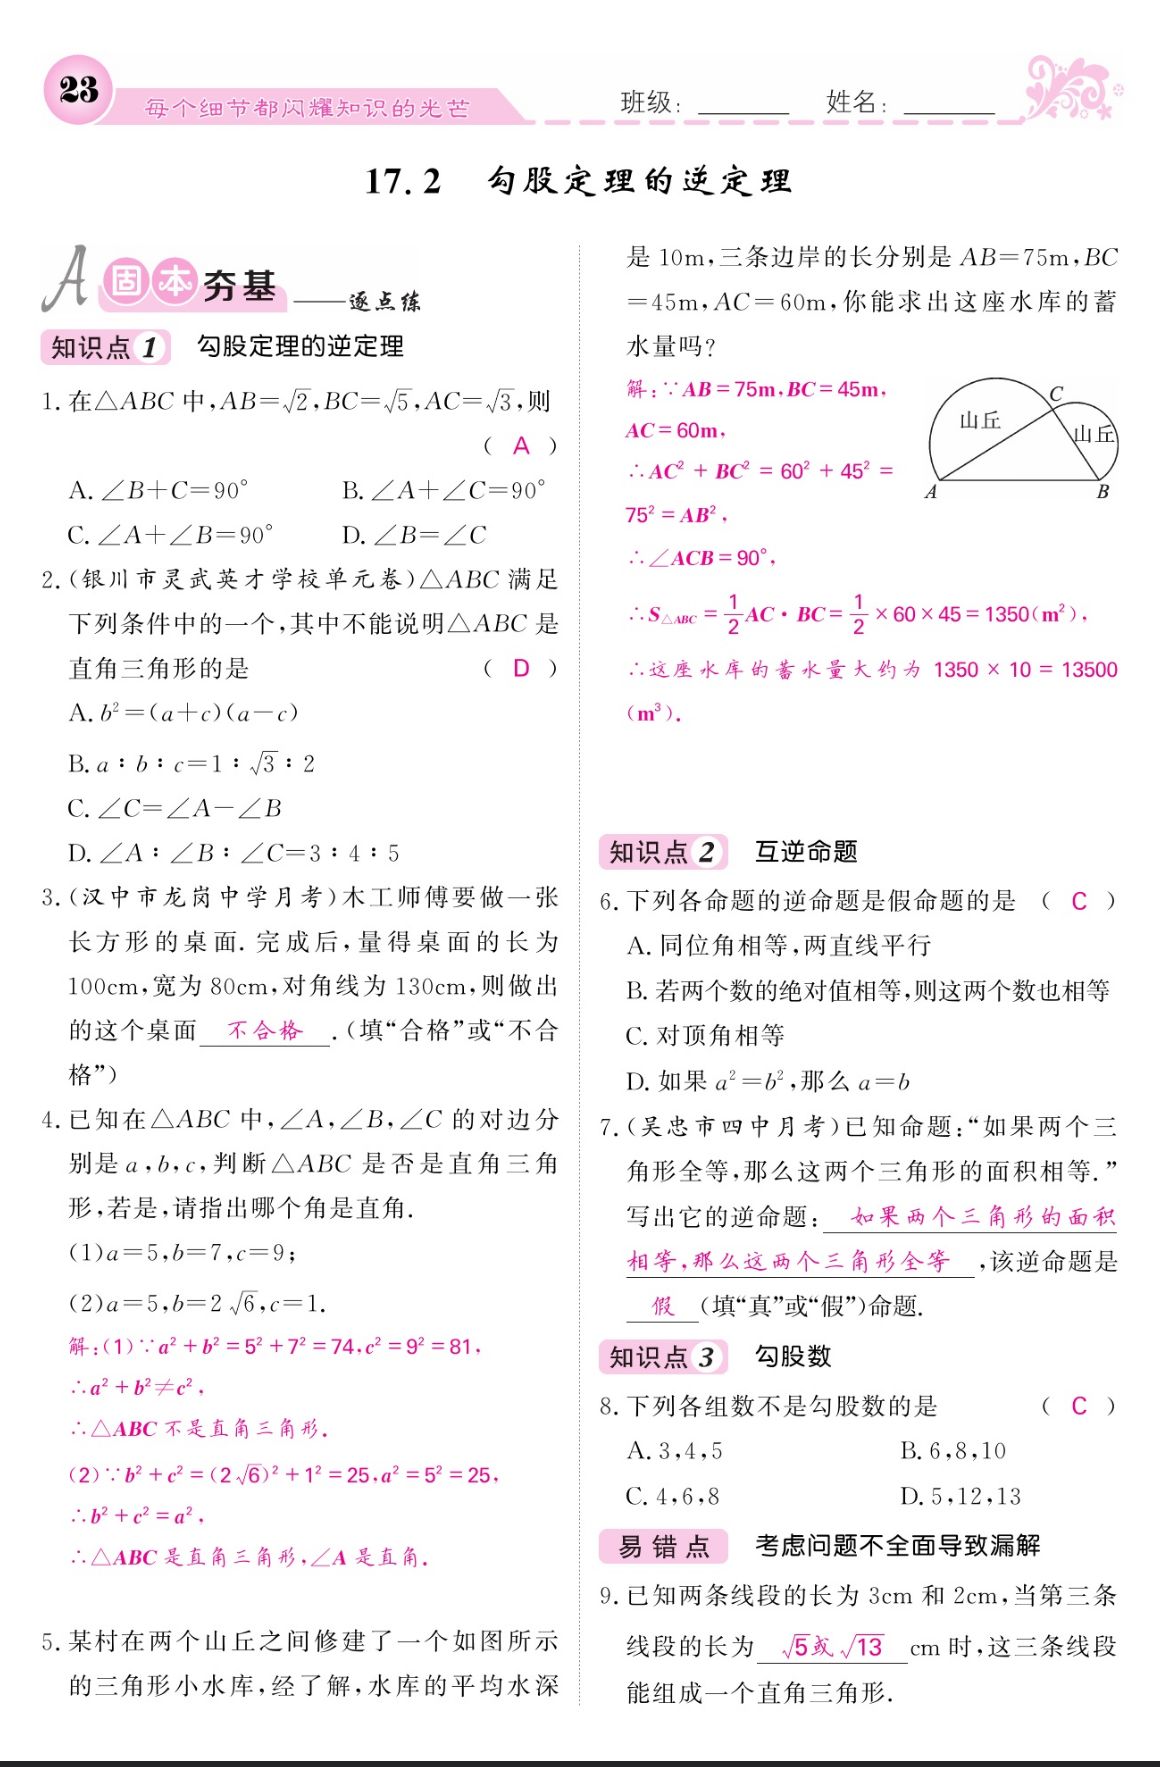 23
每个细节都闪耀知识的光芒
班级：______ 姓名：______
17.2 勾股定理的逆定理
A 固本夯基 ——逐点练
知识点1 勾股定理的逆定理
1.在△ABC中,AB=√2,BC=√5,AC=√3,则
( A )
A.∠B+C=90° B.∠A+∠C=90°
C.∠A+∠B=90° D.∠B=∠C
2.(银川市灵武英才学校单元卷)△ABC满足
下列条件中的一个,其中不能说明△ABC是
直角三角形的是 ( D )
A.b²=(a+c)(a-c)
B.a∶b∶c=1∶√3∶2
C.∠C=∠A-∠B
D.∠A∶∠B∶∠C=3∶4∶5
3.(汉中市龙岗中学月考)木工师傅要做一张
长方形的桌面.完成后,量得桌面的长为
100cm,宽为80cm,对角线为130cm,则做出
的这个桌面 不合格 .(填“合格”或“不合
格”)
4.已知在△ABC中,∠A,∠B,∠C的对边分
别是a,b,c,判断△ABC是否是直角三角
形,若是,请指出哪个角是直角.
(1)a=5,b=7,c=9;
(2)a=5,b=2√6,c=1.
解:(1)∵a²+b²=5²+7²=74,c²=9²=81,
∴a²+b²≠c²,
∴△ABC不是直角三角形.
(2)∵b²+c²=(2√6)²+1²=25,a²=5²=25,
∴b²+c²=a²,
∴△ABC是直角三角形,∠A是直角.
5.某村在两个山丘之间修建了一个如图所示
的三角形小水库,经了解,水库的平均水深
是10m,三条边岸的长分别是AB=75m,BC
=45m,AC=60m,你能求出这座水库的蓄
水量吗?
解:∵AB=75m,BC=45m,
AC=60m,
∴AC²+BC²=60²+45²=
75²=AB²,
∴∠ACB=90°,
∴S△ABC=1/2AC·BC=1/2×60×45=1350(m²),
∴这座水库的蓄水量大约为1350×10=13500
(m³).
C
山丘
山丘
A
B
知识点2 互逆命题
6.下列各命题的逆命题是假命题的是 ( C )
A.同位角相等,两直线平行
B.若两个数的绝对值相等,则这两个数也相等
C.对顶角相等
D.如果a²=b²,那么a=b
7.(吴忠市四中月考)已知命题:“如果两个三
角形全等,那么这两个三角形的面积相等.”
写出它的逆命题: 如果两个三角形的面积
相等,那么这两个三角形全等 ,该逆命题是
假 (填“真”或“假”)命题.
知识点3 勾股数
8.下列各组数不是勾股数的是 ( C )
A.3,4,5 B.6,8,10
C.4,6,8 D.5,12,13
易错点 考虑问题不全面导致漏解
9.已知两条线段的长为3cm和2cm,当第三条
线段的长为 √5或√13 cm时,这三条线段
能组成一个直角三角形.